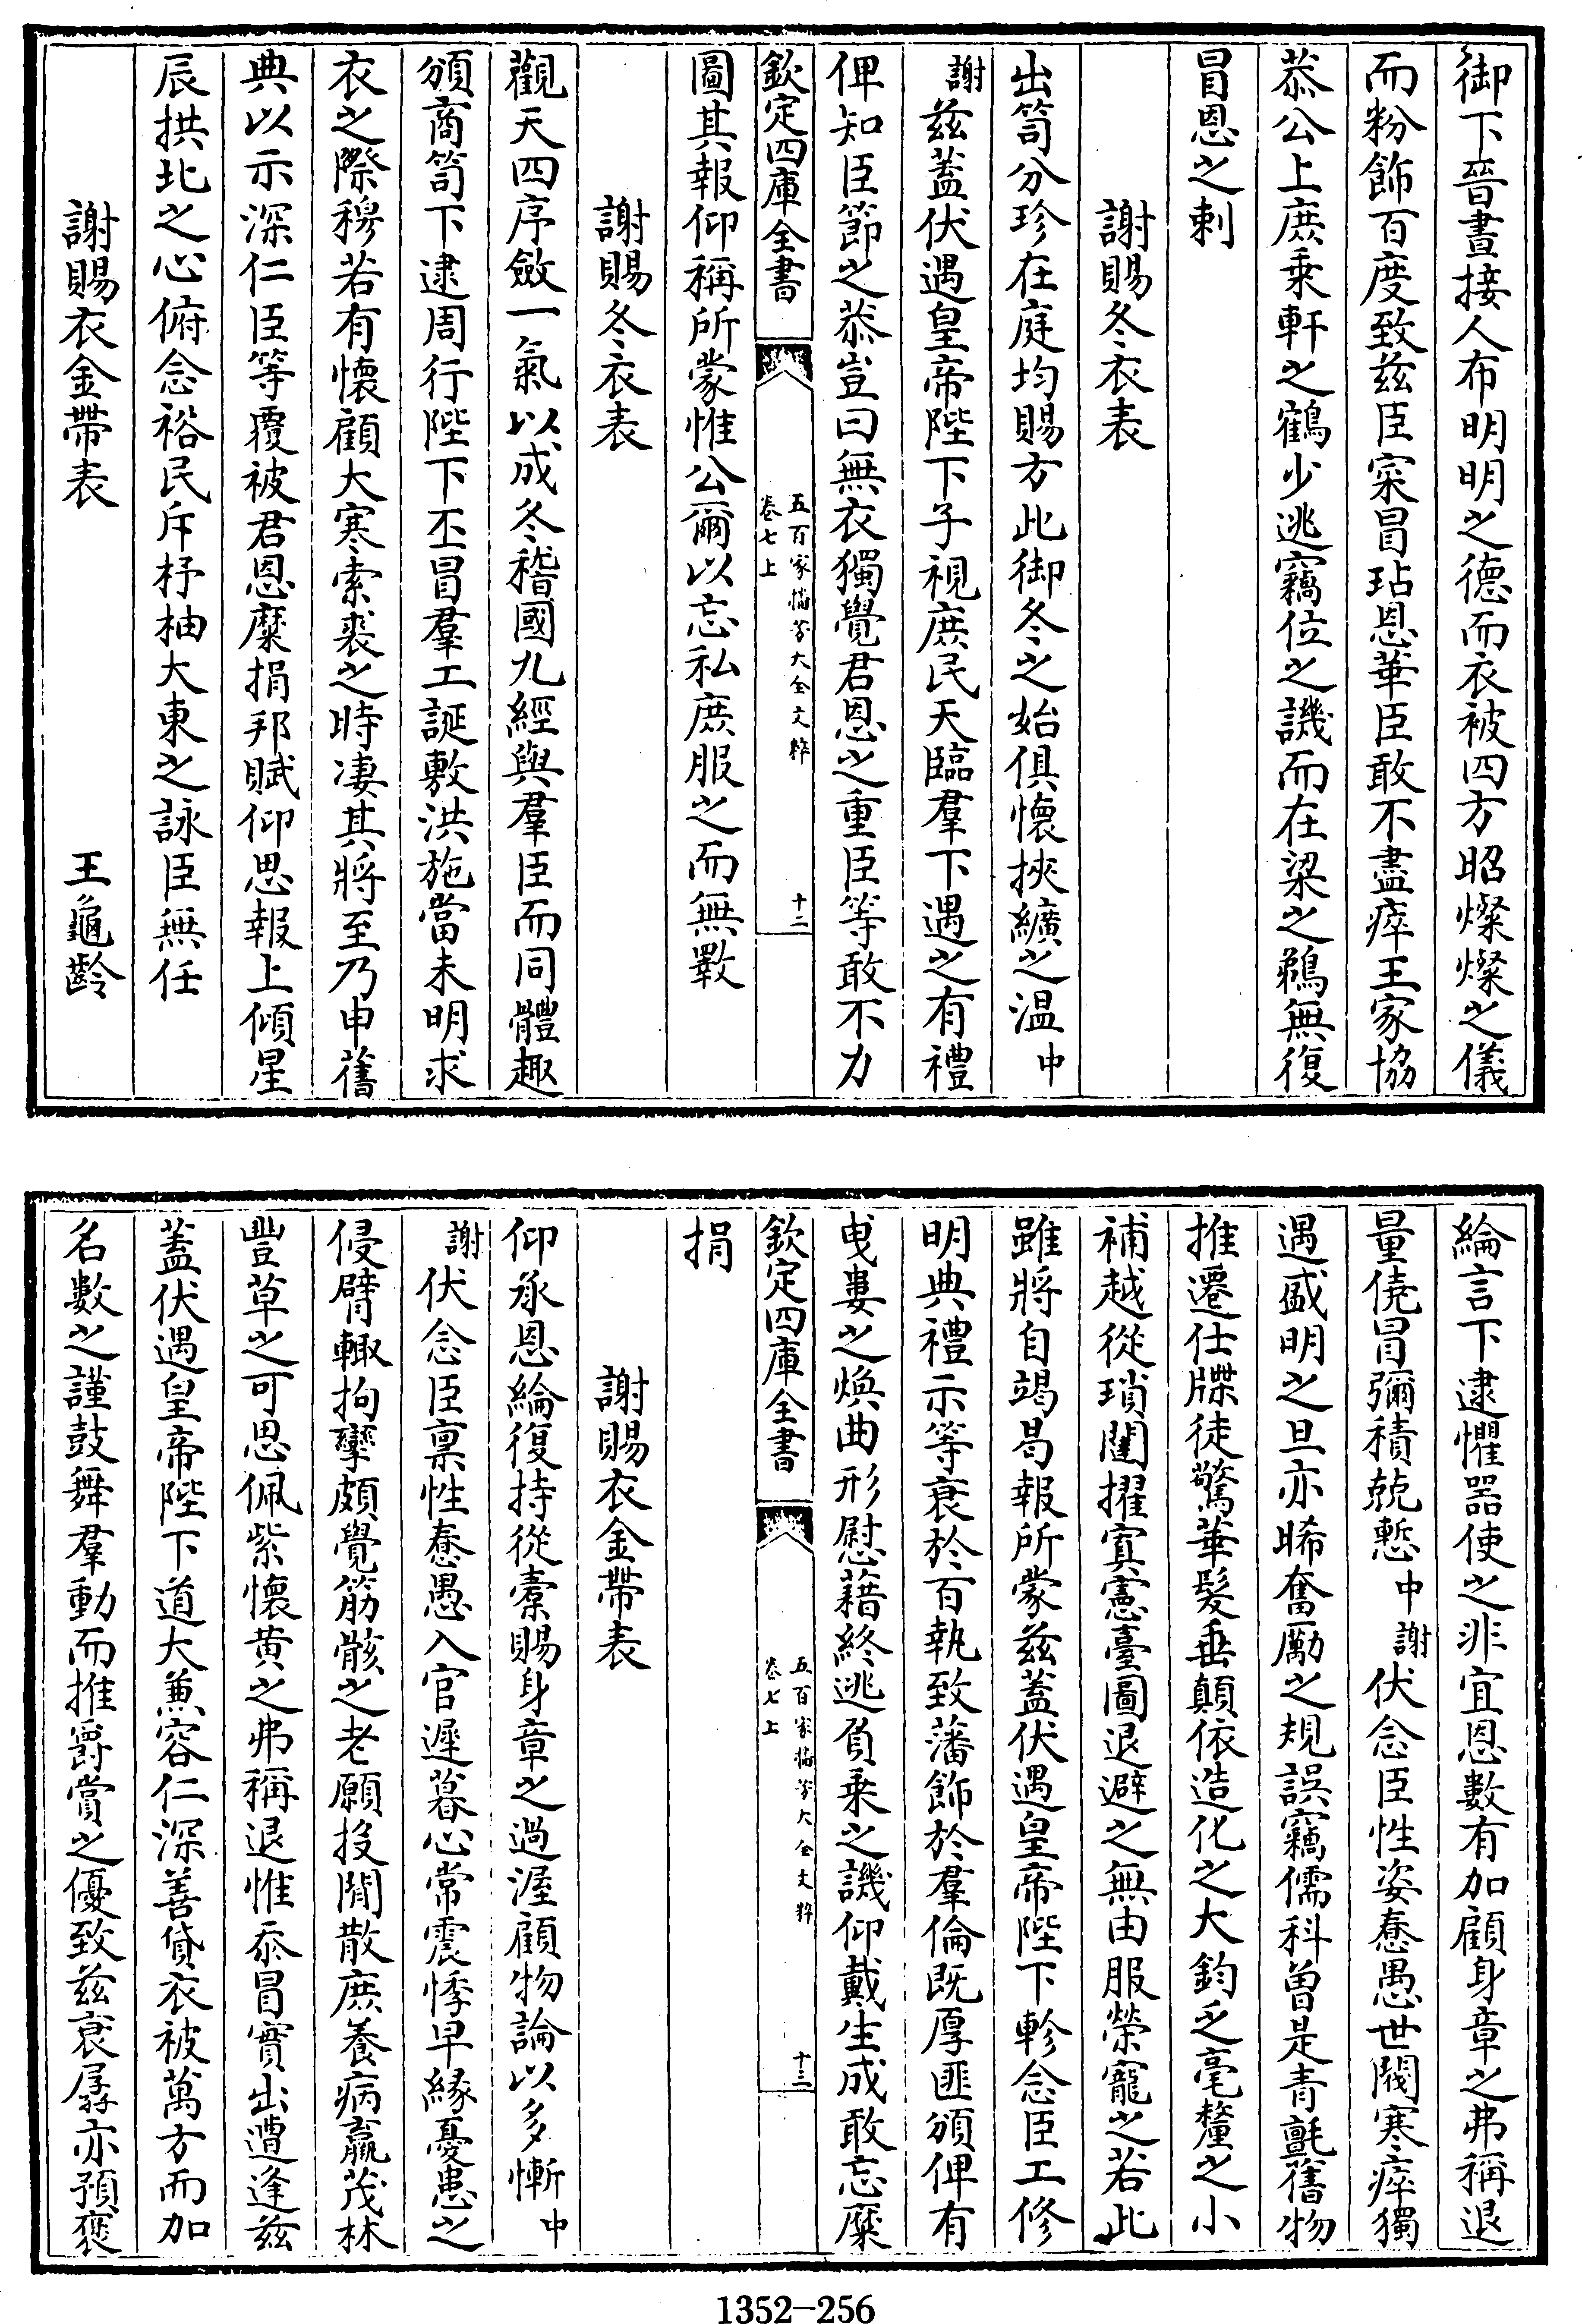 御下晉晝接人布明明之德而衣被四方昭燦燦之儀
而粉飾百度致兹臣宷冒玷恩華臣敢不盡瘁王家協
恭公上庶乘軒之鶴少逃竊位之譏而在梁之鵜無復
冒恩之刺
謝賜冬衣表
出笥分珍在庭均賜方此御冬之始俱懷挾纊之温中
謝兹蓋伏遇皇帝陛下子視庶民天臨羣下遇之有禮
俾知臣節之恭豈曰無衣獨覺君恩之重臣等敢不力
欽定四庫全書
五百家播芳大全文粹
卷七上
十二
圖其報仰稱所蒙惟公爾以忘私庶服之而無斁
謝賜冬衣表
觀天四序斂一氣以成冬稽國九經與羣臣而同體趣
頒商笥下逮周行陛下丕冒羣工誕敷洪施當未明求
衣之際穆若有懷顧大寒索裘之時凄其將至乃申舊
典以示深仁臣等覆被君恩糜捐邦賦仰思報上傾星
辰拱北之心俯念裕民斥杼柚大東之詠臣無任
謝賜衣金帶表
王龜齡
綸言下逮懼器使之非宜恩數有加顧身章之弗稱退
量僥冒彌積兢慙中謝伏念臣性姿惷愚世閥寒瘁獨
遇盛明之旦亦晞奮勵之規誤竊儒科曾是青氈舊物
推遷仕牒徒驚華髮垂顛依造化之大鈞乏毫釐之小
補越從瑣闥擢寘憲臺圖退避之無由服榮寵之若此
雖將自竭曷報所蒙兹蓋伏遇皇帝陛下軫念臣工修
明典禮示等衰於百執致藩飾於羣倫既厚匪頒俾有
曵婁之煥曲形慰藉終逃負乘之譏仰戴生成敢忘糜
欽定四庫全書
五百家播芳大全文粹
卷七上
十三
捐
謝賜衣金帶表
仰承恩綸復持從橐賜身章之過渥顧物論以多慚中
謝伏念臣禀性惷愚入官遲暮心常震悸早緣憂患之
侵臂輙拘攣頗覺筋骸之老願投閒散庶養病羸茂林
豐草之可思佩紫懷黄之弗稱退惟忝冒實出遭逢兹
蓋伏遇皇帝陛下道大兼容仁深善貸衣被萬方而加
名數之謹鼓舞羣動而推爵賞之優致兹衰孱亦預褒
1352—256